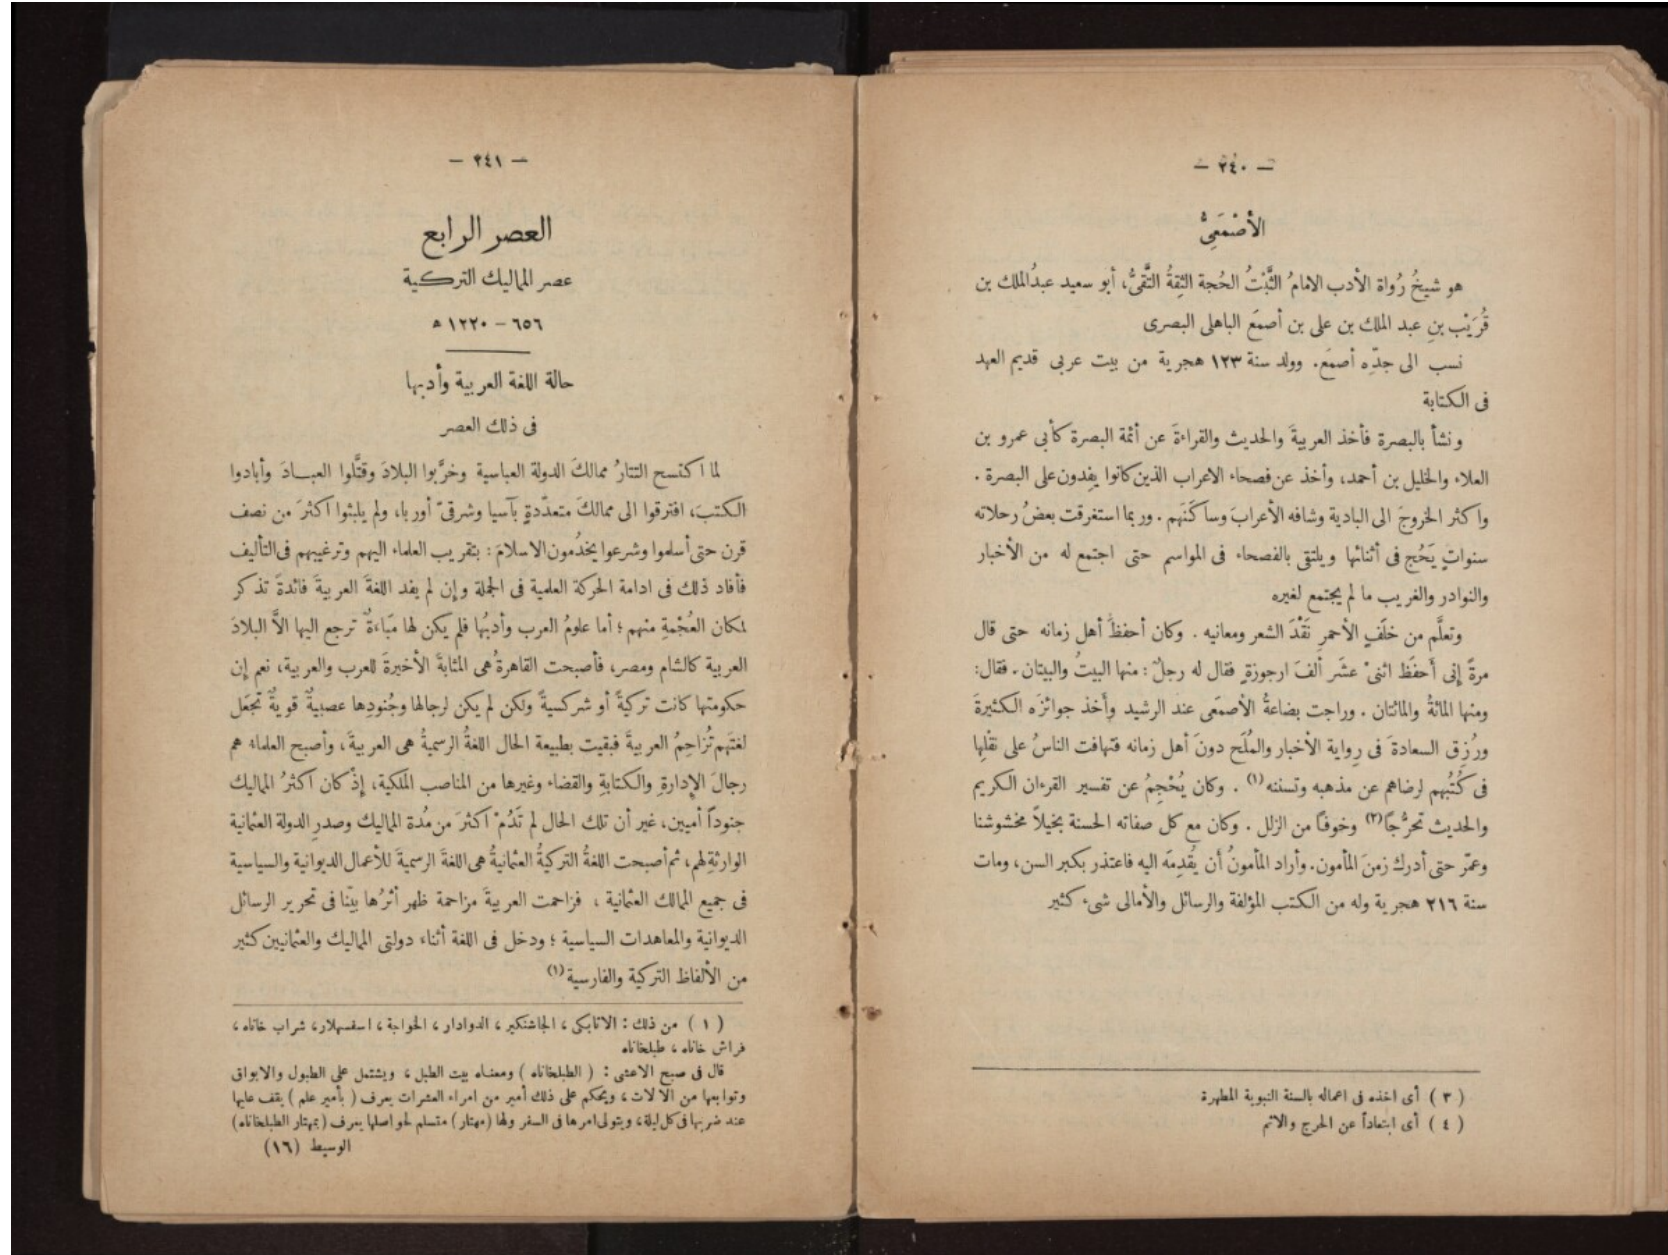 — ٢٤٠ —
الأصْمَعِىُّ
هو شيخُ رُواة الأدب الامامُ الثَّبْتُ الحُجة الثِقةُ التَّقىُّ، أبو سعيد عبدُالملك بن
قُرَيْب بنِ عبد الملك بن على بن أصمَع الباهلى البصرى
نسب الى جدِّه أصمَع. وولد سنة ١٢٣ هجرية من بيت عربى قديم العهد
فى الكتابة
ونشأ بالبصرة فأخذ العربيةَ والحديث والقراءةَ عن أئمة البصرة كأبى عمرو بن
العلاء والخليل بن أحمد، وأخذ عن فصحاء الاعراب الذين كانوا يفِدون على البصرة .
واكثر الخروجَ الى البادية وشافه الأعرابَ وساكَنَهم . وربما استغرقت بعضُ رحلاته
سنواتٍ يَحُج فى أثنائها ويلتقى بالفصحاء فى المواسم حتى اجتمع له من الأخبار
والنوادر والغريب ما لم يجتمع لغيره
وتعلَّم من خلَفٍ الأحمرِ نَقْدَ الشعر ومعانيه . وكان أحفظَ أهل زمانه حتى قال
مرةً إنى أَحفَظ اثنىْ عشَر ألفَ ارجوزةٍ فقال له رجلٌ : منها البيتُ والبيتان . فقال:
ومنها المائةُ والمائتان . وراجت بضاعةُ الأصمَعى عند الرشيد وأخذ جوائزَه الكثيرةَ
ورُزِق السعادةَ فى رواية الأخبار والمُلَح دونَ أهل زمانه فتهافت الناسُ على نقْلِها
فى كُتُبهم لرضاهم عن مذهبه وتسننه (١) . وكان يُحْجِمُ عن تفسير القرءان الكريم
والحديث تحرُّجًا (٢) وخوفًا من الزلل . وكان مع كل صفاته الحسنة بخيلاً مخشوشنا
وعمّر حتى أدرك زمنَ المأمون. وأراد المأمونُ أن يُقدِمَه اليه فاعتذر بكبر السن، ومات
سنة ٢١٦ هجرية وله من الكتب المؤلفة والرسائل والأمالى شىء كثير
( ٣ ) أى اخذه فى اعماله بالسنة النبوية المطهرة
( ٤ ) أى ابتعاداً عن الحرج والاثم
— ٢٤١ —
العصر الرابع
عصر المماليك التركية
٦٥٦ – ١٢٢٠ ه
حالة اللغة العربية وأدبها
فى ذلك العصر
لما اكتسح التتارُ ممالكَ الدولة العباسية وخرَّبوا البلادَ وقتَّلوا العبـادَ وأبادوا
الكتبَ، افترقوا الى ممالكَ متعدّدةٍ بآسيا وشرقىّ أوربا، ولم يلبثوا اكثرَ من نصف
قرن حتى أسلموا وشرعوا يخدُمون الاسلامَ : بتقريب العلماء اليهم وترغيبهم فى التأليف
فأفاد ذلك فى ادامة الحركة العلمية فى الجملة وإن لم يفد اللغةَ العربيةَ فائدةً تذكر
لمكان العُجْمةِ منهم ؛ أما علومُ العرب وأدبُها فلم يكن لها مَباءَةٌ ترجع اليها الاَّ البلادَ
العربية كالشام ومصر، فأصبحت القاهرةُ هى المثابةَ الأخيرةَ للعرب والعربية، نعم إن
حكومتها كانت تركيةً أو شركسيةً ولكن لم يكن لرجالها وجُنودِها عصبيةٌ قويةٌ تجعَل
لغتَهم تُزاحِمُ العربيةَ فبقيت بطبيعة الحال اللغةُ الرسميةُ هى العربيةَ ، وأصبح العلماء هم
رجالَ الإِدارةِ والكتابةِ والقضاء وغيرها من المناصب الملكية، إذْ كان اكثرُ المماليك
جنوداً أميين، غير أن تلك الحال لم تَدُمْ اكثرَ من مُدة المماليك وصدرِ الدولة العثمانية
الوارثةِ لهم، ثم أصبحت اللغةُ التركيةُ العثمانيةُ هى اللغةَ الرسميةَ للأعمال الديوانية والسياسية
فى جميع الممالك العثمانية ، فزاحمت العربيةَ مزاحمة ظهر أثرُها بيّنا فى تحرير الرسائل
الديوانية والمعاهدات السياسية ؛ ودخل فى اللغة أثناء دولتى المماليك والعثمانيين كثير
من الألفاظ التركية والفارسية (١)
( ١ ) من ذلك : الاتابكى ، الجاشنكير ، الدوادار ، الخواجة ، اسفسهلار، شراب خاناه ،
فراش خاناه ، طبلخاناه
قال فى صبح الاعشى : ( الطبلخاناه ) ومعناه بيت الطبل ، ويشتمل على الطبول والابواق
وتوابعها من الآلات ، ويحكم على ذلك أمير من امراء العشرات يعرف ( بأمير علم ) يقف عليها
عند ضربها فى كل ليلة، ويتولى امرها فى السفر ولها (مهتار) متسلم لحواصلها يعرف (بمهتار الطبلخاناه)
الوسيط (١٦)